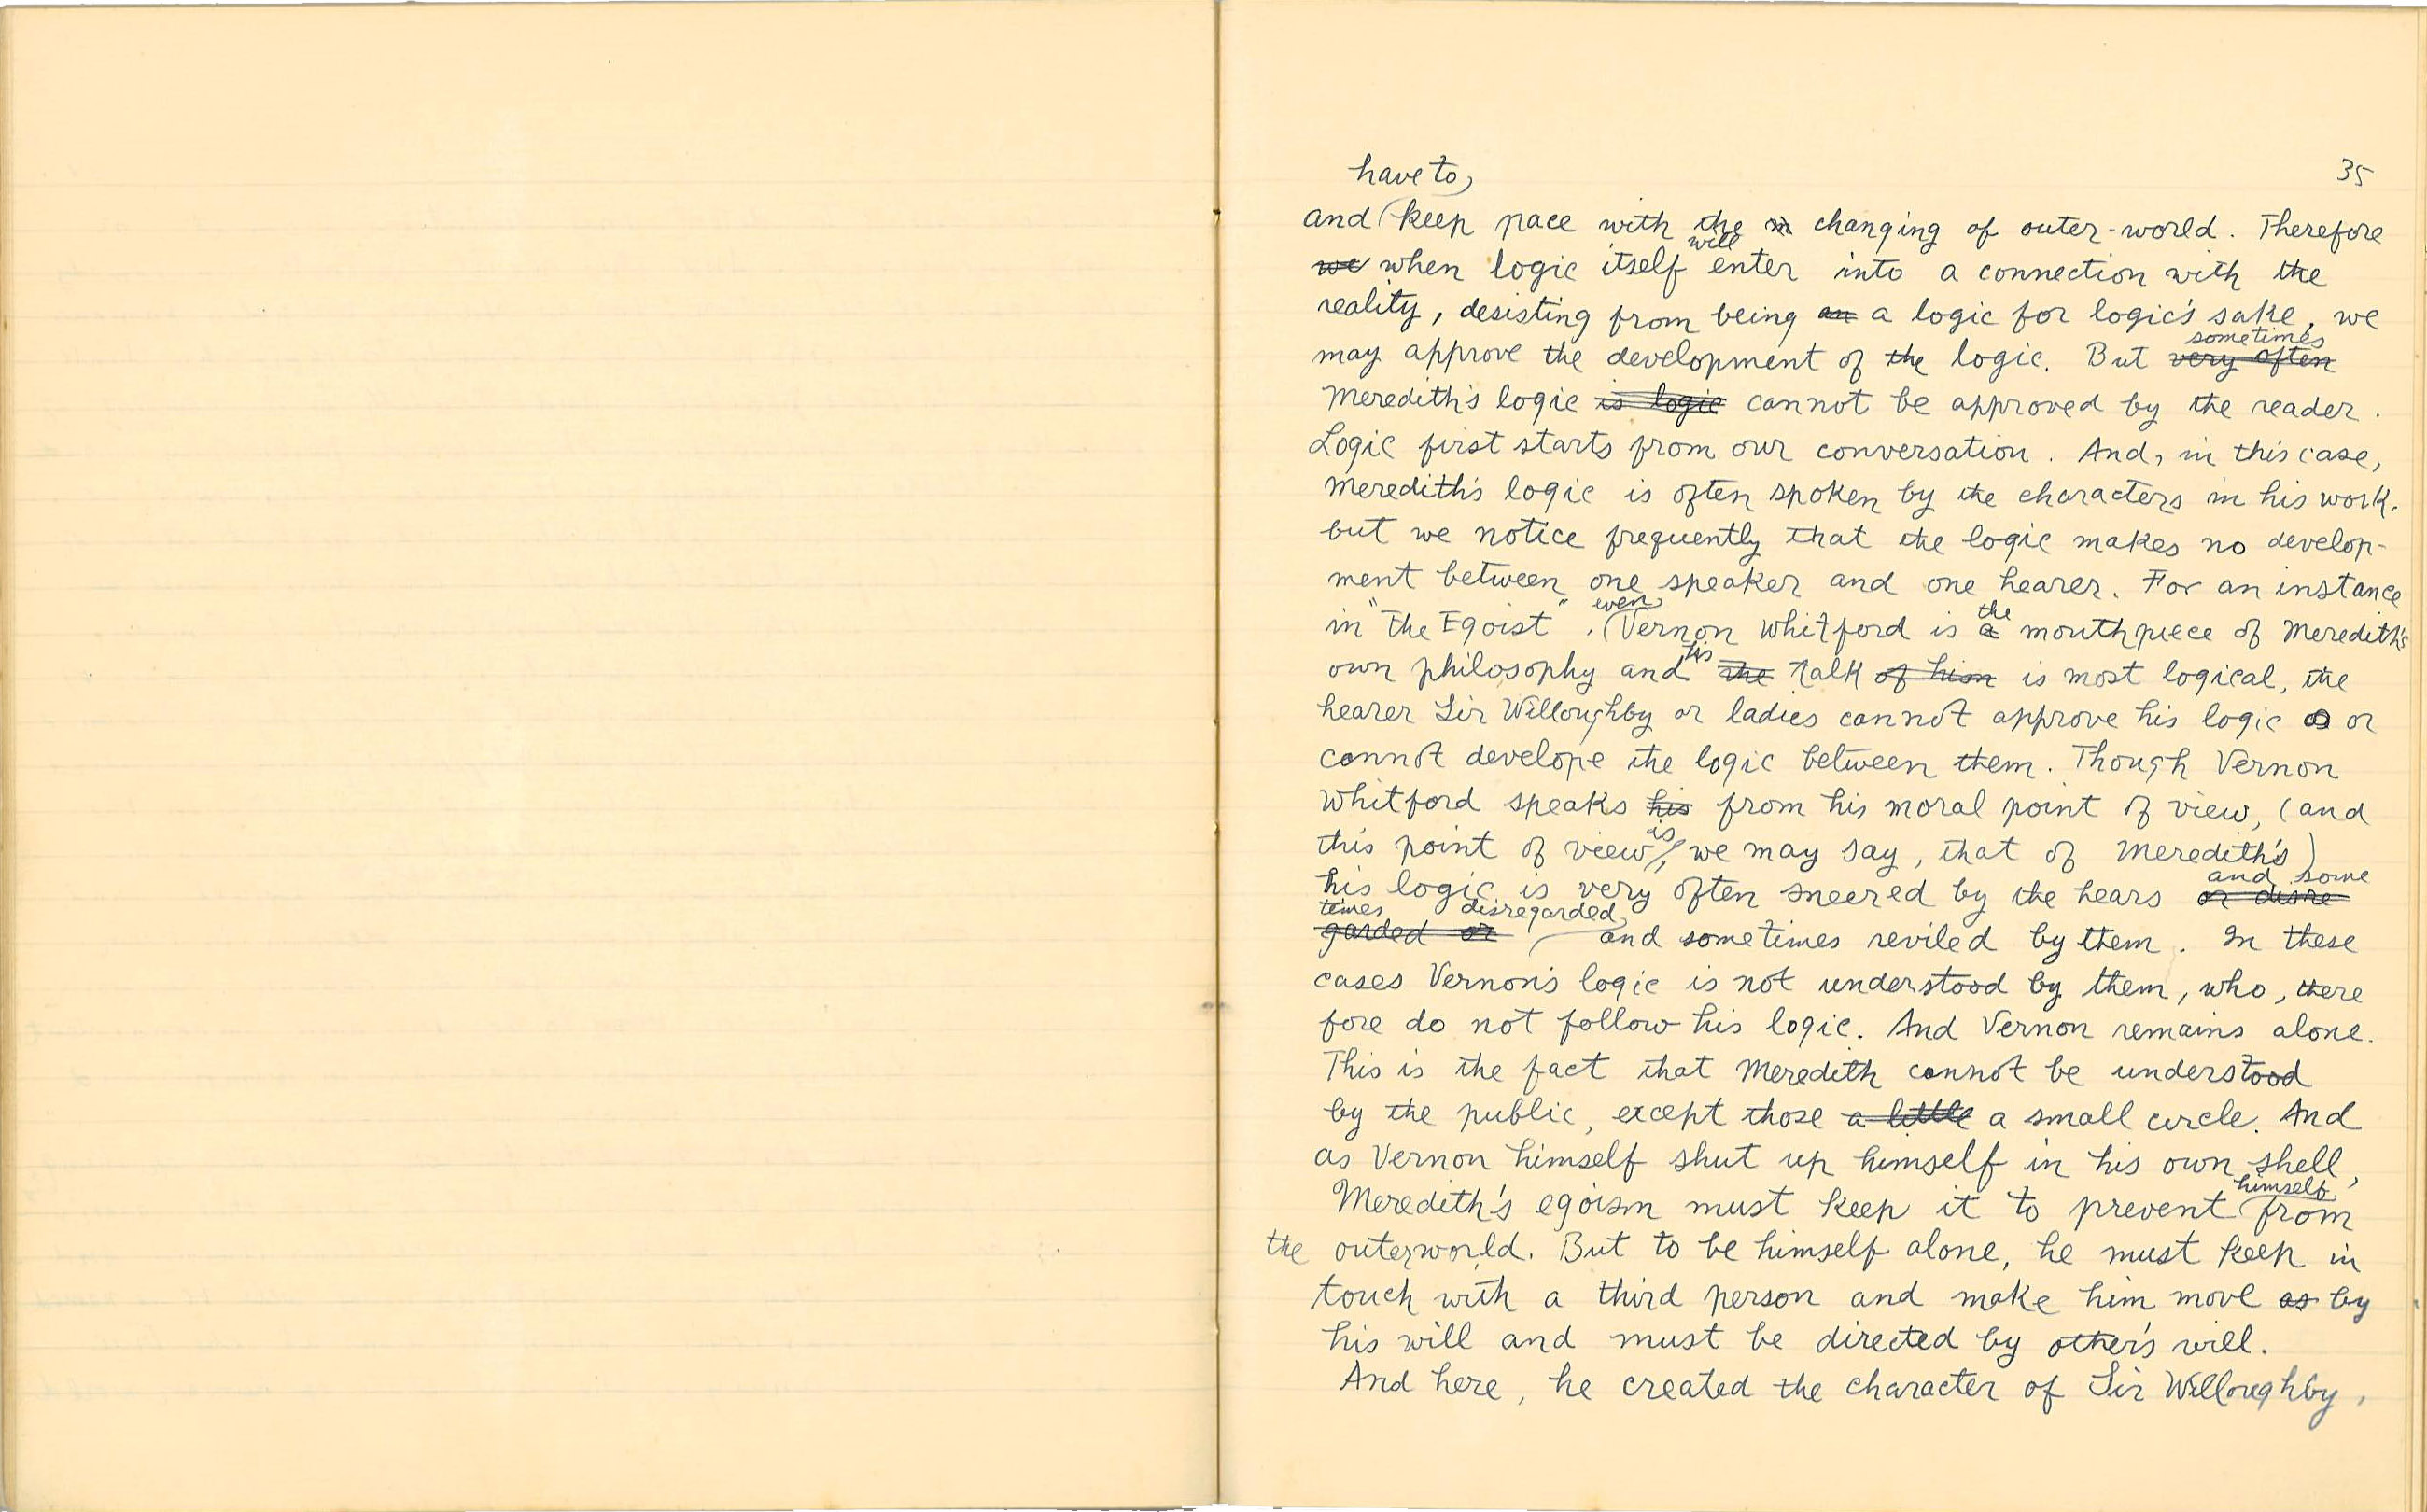 35
have to
and keep pace with the ~~m~~ changing of outer-world. Therefore
will
~~we~~ when logic itself enter into a connection with the
reality, desisting from being ~~an~~ a logic for logic's sake, we
sometimes
may approve the development of the logic. But ~~very often~~
Meredith's logic ~~is logic~~ cannot be approved by the reader.
Logic first starts from our conversation. And, in this case,
Meredith's logic is often spoken by the characters in his work.
but we notice frequently that the logic makes no develop-
ment between one speaker and one hearer. For an instance
even the
in "The Egoist". (Vernon Whitford is ~~a~~ mouthpiece of Meredith's
his
own philosophy and ~~the~~ talk ~~of him~~ is most logical, the
hearer Sir Willoughby or ladies cannot approve his logic or
cannot develope the logic between them. Though Vernon
Whitford speaks ~~his~~ from his moral point of view, (and
is
this point of view, we may say, that of Meredith's)
and some
his logic is very often sneered by the hears ~~or disre~~
times disregarded
~~garded or~~ and sometimes reviled by them. In these
cases Vernon's logic is not understood by them, who, there
fore do not follow his logic. And Vernon remains alone.
This is the fact that Meredith cannot be understood
by the public, except those ~~a little~~ a small circle. And
as Vernon himself shut up himself in his own shell,
himself
Meredith's egoism must keep it to prevent from
the outerworld. But to be himself alone, he must keep in
touch with a third person and make him move ~~as~~ by
his will and must be directed by other's will.
And here, he created the character of Sir Willoughby,